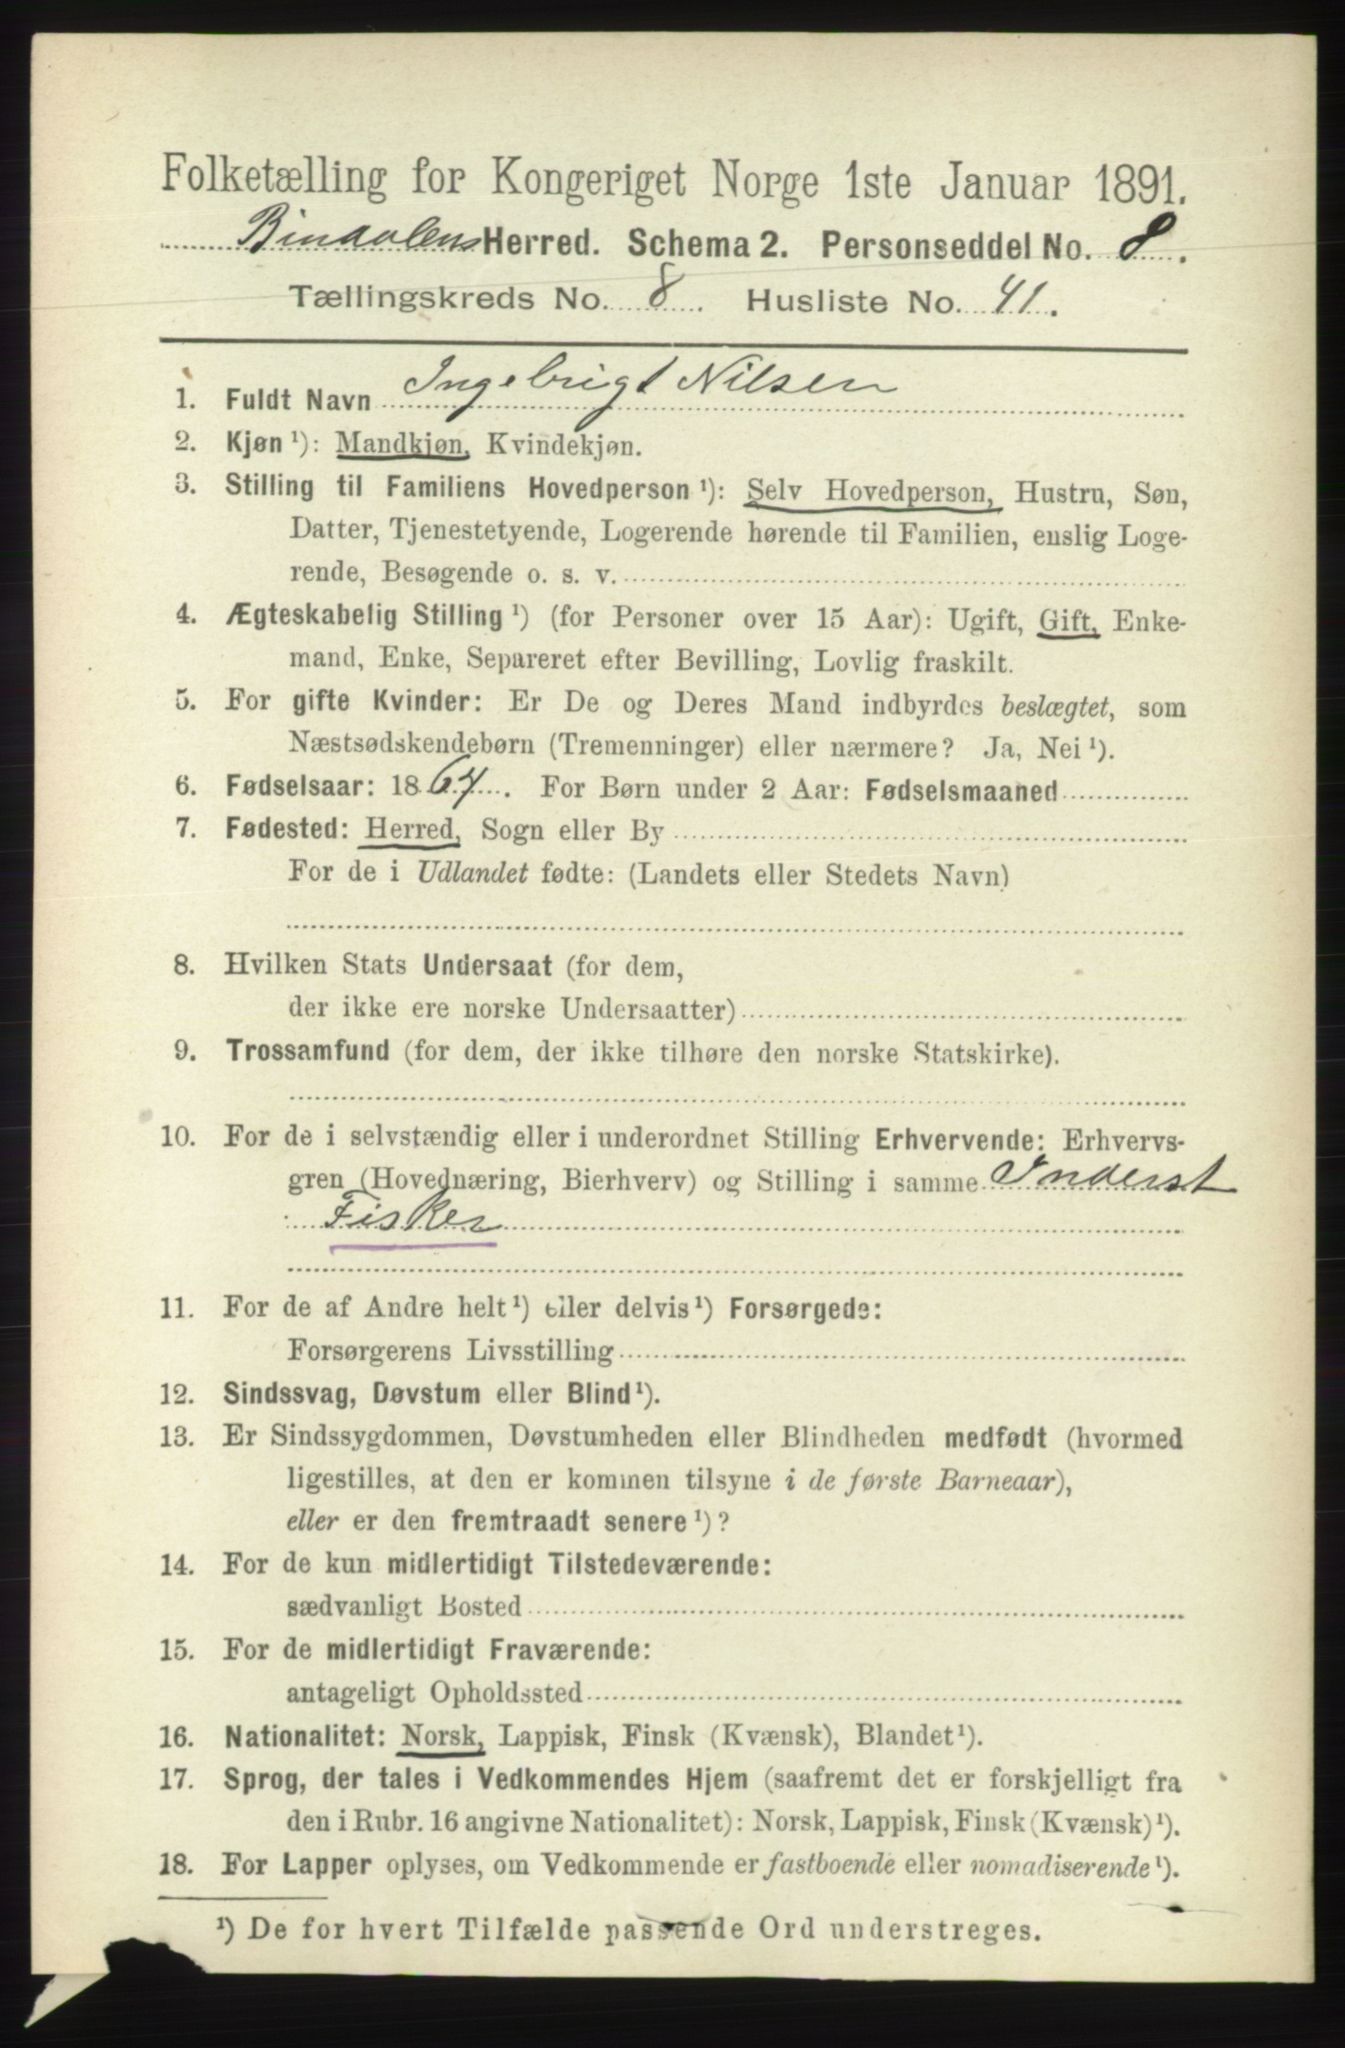 Folketælling for Kongeriget Norge 1ste Januar 1891.
Bindalens Herred. Schema 2. Personseddel No. 8.
Tællingskreds No. 8. Husliste No. 41.
1. Fuldt Navn Ingebrigt Nilsen
2. Kjøn ¹): Mandkjøn, Kvindekjøn.
3. Stilling til Familiens Hovedperson ¹): Selv Hovedperson, Hustru, Søn,
Datter, Tjenestetyende, Logerende hørende til Familien, enslig Loge-
rende, Besøgende o. s. v.
4. Ægteskabelig Stilling ¹) (for Personer over 15 Aar): Ugift, Gift, Enke-
mand, Enke, Separeret efter Bevilling, Lovlig fraskilt.
5. For gifte Kvinder: Er De og Deres Mand indbyrdes beslægtet, som
Næstsødskendebørn (Tremenninger) eller nærmere? Ja, Nei ¹).
6. Fødselsaar: 1867. For Børn under 2 Aar: Fødselsmaaned
7. Fødested: Herred, Sogn eller By
For de i Udlandet fødte: (Landets eller Stedets Navn)
8. Hvilken Stats Undersaat (for dem,
der ikke ere norske Undersaatter)
9. Trossamfund (for dem, der ikke tilhøre den norske Statskirke).
10. For de i selvstændig eller i underordnet Stilling Erhvervende: Erhvervs-
gren (Hovednæring, Bierhverv) og Stilling i samme Inderst
Fisker
11. For de af Andre helt ¹) eller delvis ¹) Forsørgede:
Forsørgerens Livsstilling
12. Sindssvag, Døvstum eller Blind ¹).
13. Er Sindssygdommen, Døvstumheden eller Blindheden medfødt (hvormed
ligestilles, at den er kommen tilsyne i de første Barneaar),
eller er den fremtraadt senere ¹)?
14. For de kun midlertidigt Tilstedeværende:
sædvanligt Bosted
15. For de midlertidigt Fraværende:
antageligt Opholdssted
16. Nationalitet: Norsk, Lappisk, Finsk (Kvænsk), Blandet ¹).
17. Sprog, der tales i Vedkommendes Hjem (saafremt det er forskjelligt fra
den i Rubr. 16 angivne Nationalitet): Norsk, Lappisk, Finsk (Kvænsk) ¹).
18. For Lapper oplyses, om Vedkommende er fastboende eller nomadiserende ¹).
¹) De for hvert Tilfælde passende Ord understreges.